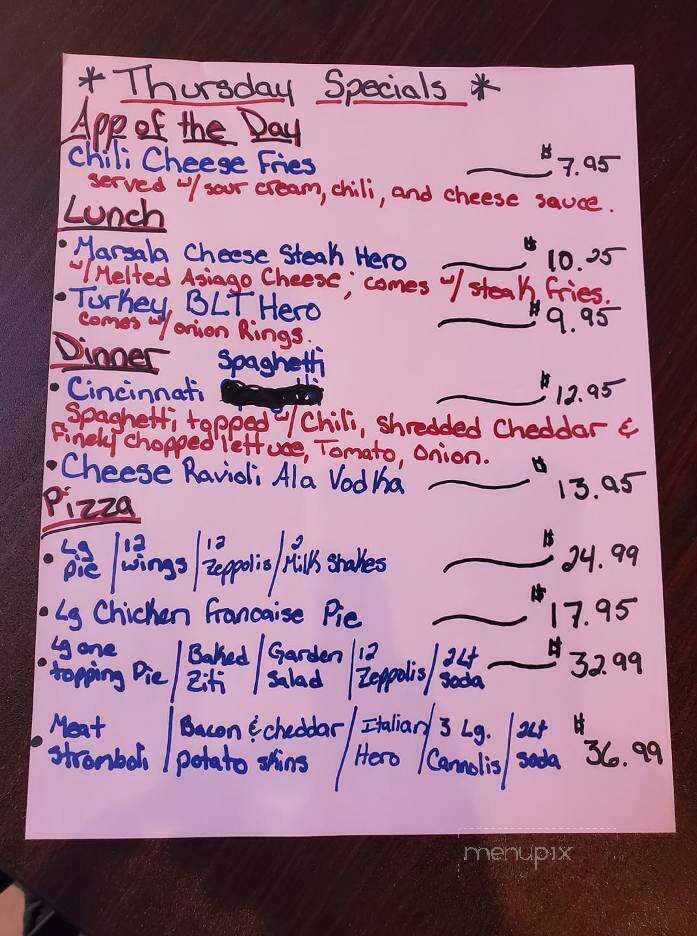 * Thursday Specials *
App of the Day
Chili Cheese Fries $7.95
served w/ sour cream, chili, and cheese sauce.
Lunch
• Marsala Cheese Steak Hero $10.25
w/ Melted Asiago Cheese; comes w/ steak fries.
• Turkey BLT Hero $9.95
comes w/ onion Rings.
Dinner
Spaghetti
• Cincinnati $12.95
Spaghetti topped w/ Chili, shredded Cheddar &
Finely chopped lettuce, Tomato, Onion.
• Cheese Ravioli Ala Vodka $13.95
Pizza
• Lg Pie / 12 wings / 12 Zeppolis / 2 Milk Shakes $24.99
• Lg Chicken francaise Pie $17.95
• Lg one topping Pie / Baked Ziti / Garden Salad / 12 Zeppolis / 2Lt soda $32.99
• Meat stromboli / Bacon & cheddar potato skins / Italian Hero / 3 Lg. Cannolis / 2Lt soda $36.99
menupix